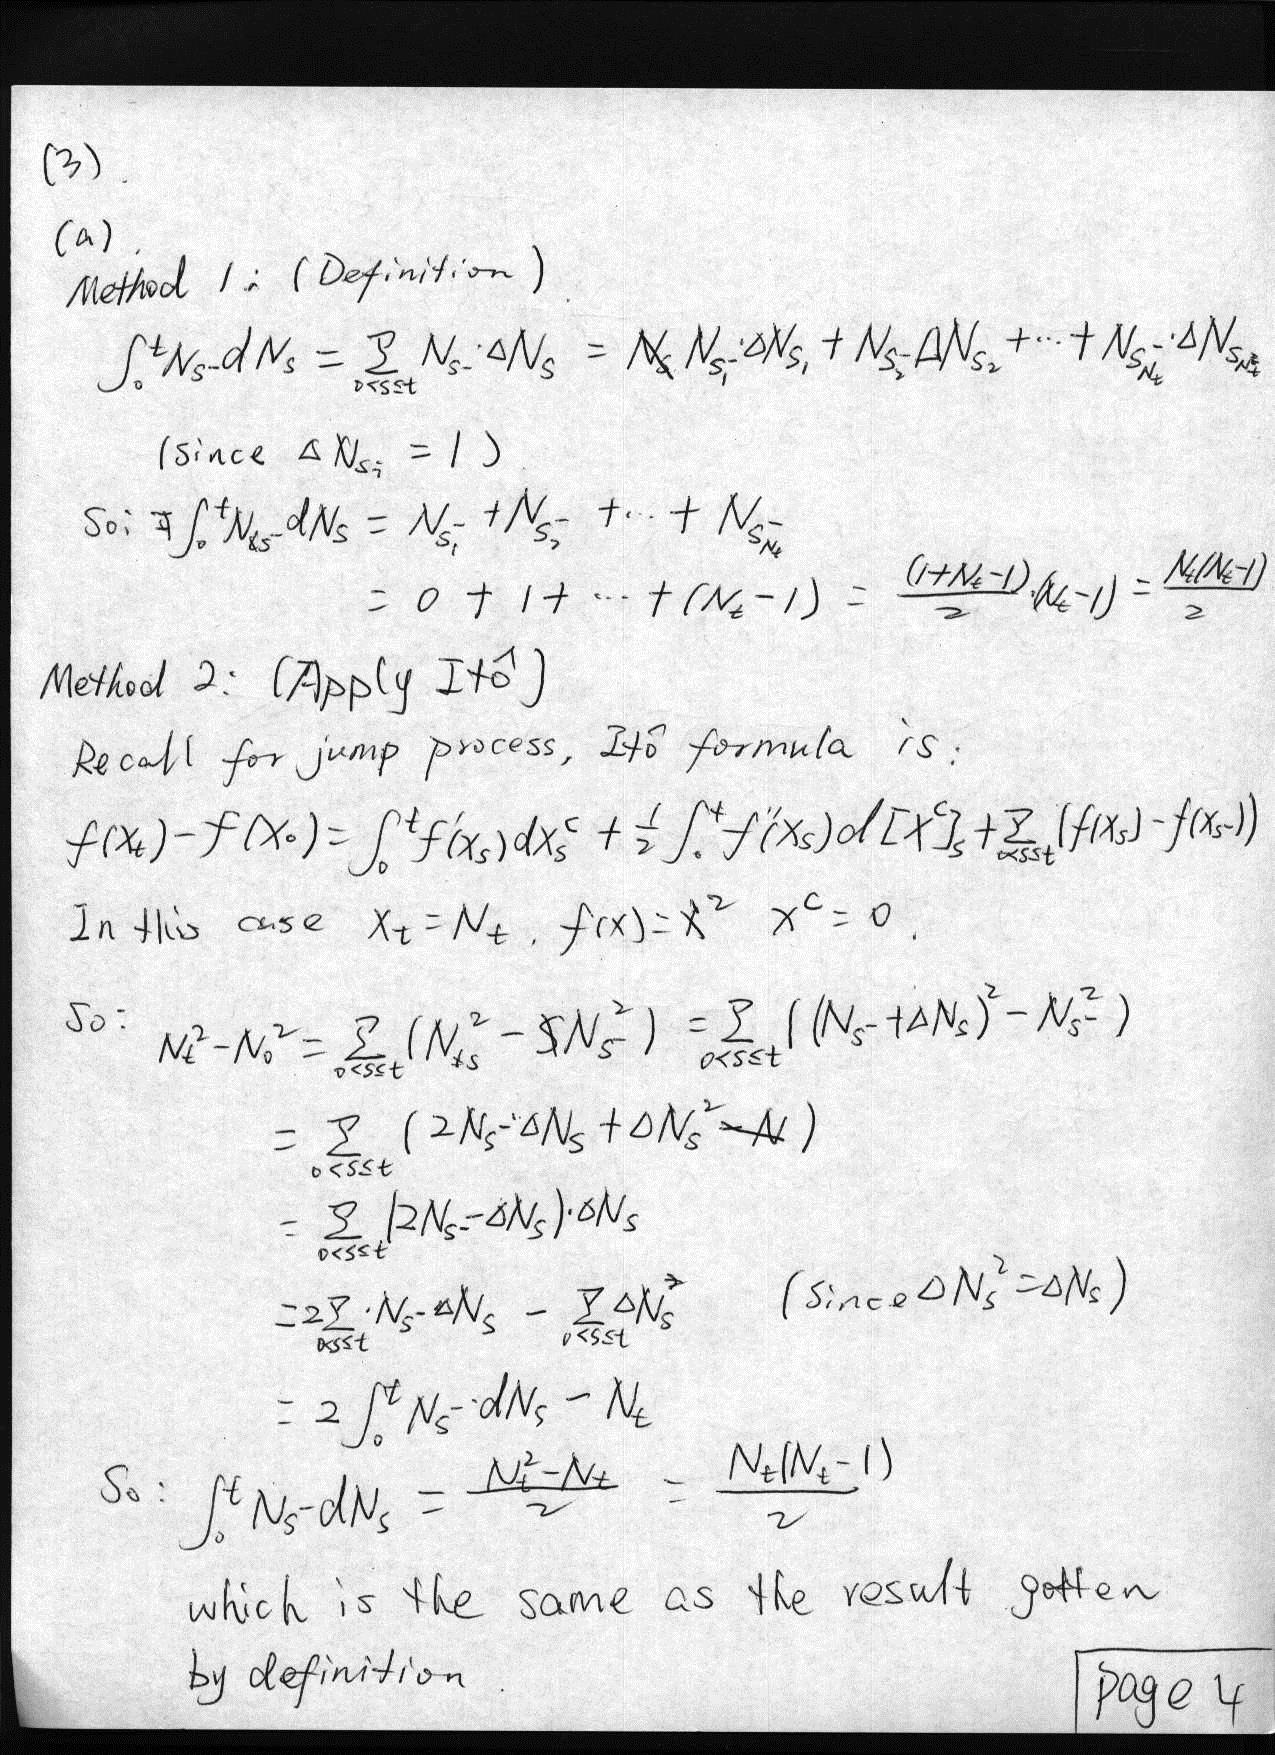 (3).
(a).
Method 1: (Definition).
∫₀ᵗ N_{s-} dN_s = Σ_{0<s≤t} N_{s-}·ΔN_s = N_{s₁⁻}·ΔN_{s₁} + N_{s₂⁻} ΔN_{s₂} + ··· + N_{s_{N_t}⁻}·ΔN_{s_{N_t}}
(since ΔN_{s_i} = 1)
So: ∫₀ᵗ N_{s-} dN_s = N_{s₁⁻} + N_{s₂⁻} + ··· + N_{s_{N_t}⁻}
= 0 + 1 + ··· + (N_t - 1) = (1+N_t-1)/2 · (N_t-1) = N_t(N_t-1)/2
Method 2: (Apply Itô)
Recall for jump process, Itô formula is:
f(X_t) - f(X_0) = ∫₀ᵗ f'(X_s) dX_s^c + 1/2 ∫₀ᵗ f''(X_s) d[X^c]_s + Σ_{0<s≤t} (f(X_s) - f(X_{s-}))
In this case X_t = N_t, f(x) = x² X^c = 0.
So: N_t² - N_0² = Σ_{0<s≤t} (N_s² - N_{s-}²) = Σ_{0<s≤t} ((N_{s-} + ΔN_s)² - N_{s-}²)
= Σ_{0<s≤t} (2N_{s-}·ΔN_s + ΔN_s²)
= Σ_{0<s≤t} (2N_{s-} - ΔN_s)·ΔN_s
= 2Σ_{0<s≤t} ·N_{s-} ΔN_s - Σ_{0<s≤t} ΔN_s² (since ΔN_s² = ΔN_s)
= 2 ∫₀ᵗ N_{s-}·dN_s - N_t
So: ∫₀ᵗ N_{s-} dN_s = (N_t² - N_t)/2 = N_t(N_t - 1)/2
which is the same as the result gotten
by definition.
page 4